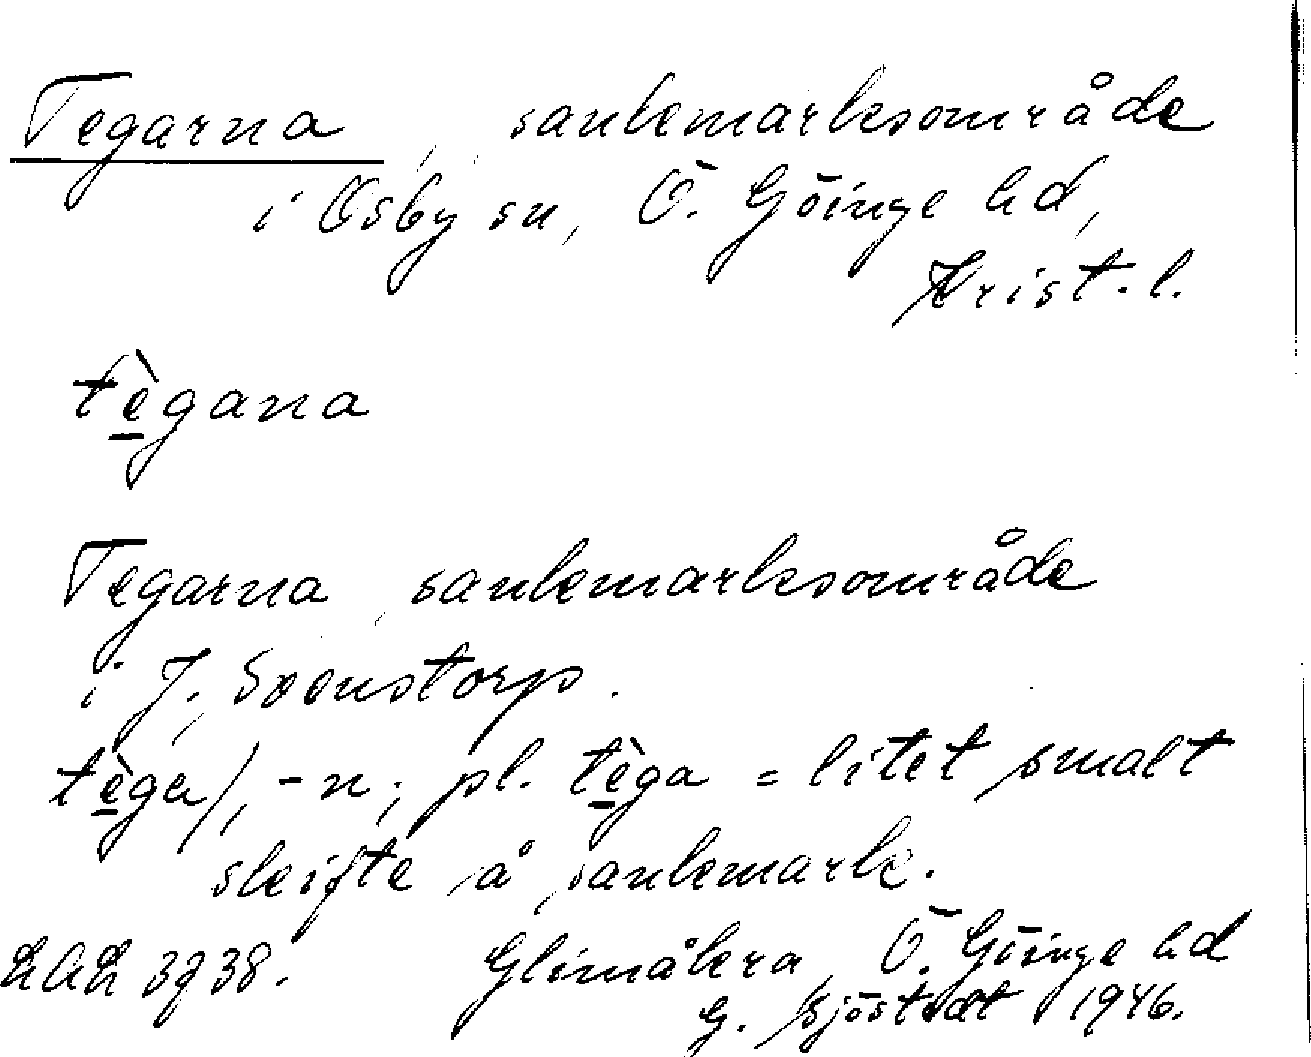 Tegarna, sankemarksområde
i Osby sn, Ö. Göinge hd,
Krist. l.
tègana
Tegarna, sankemarksområde
i J. Svenstorp.
tèga/, -n; pl. tèga = litet smalt
skifte å sankemark.
LAL 3938. Glimåkra, Ö. Göinge hd
G. Sjöstedt 1946.